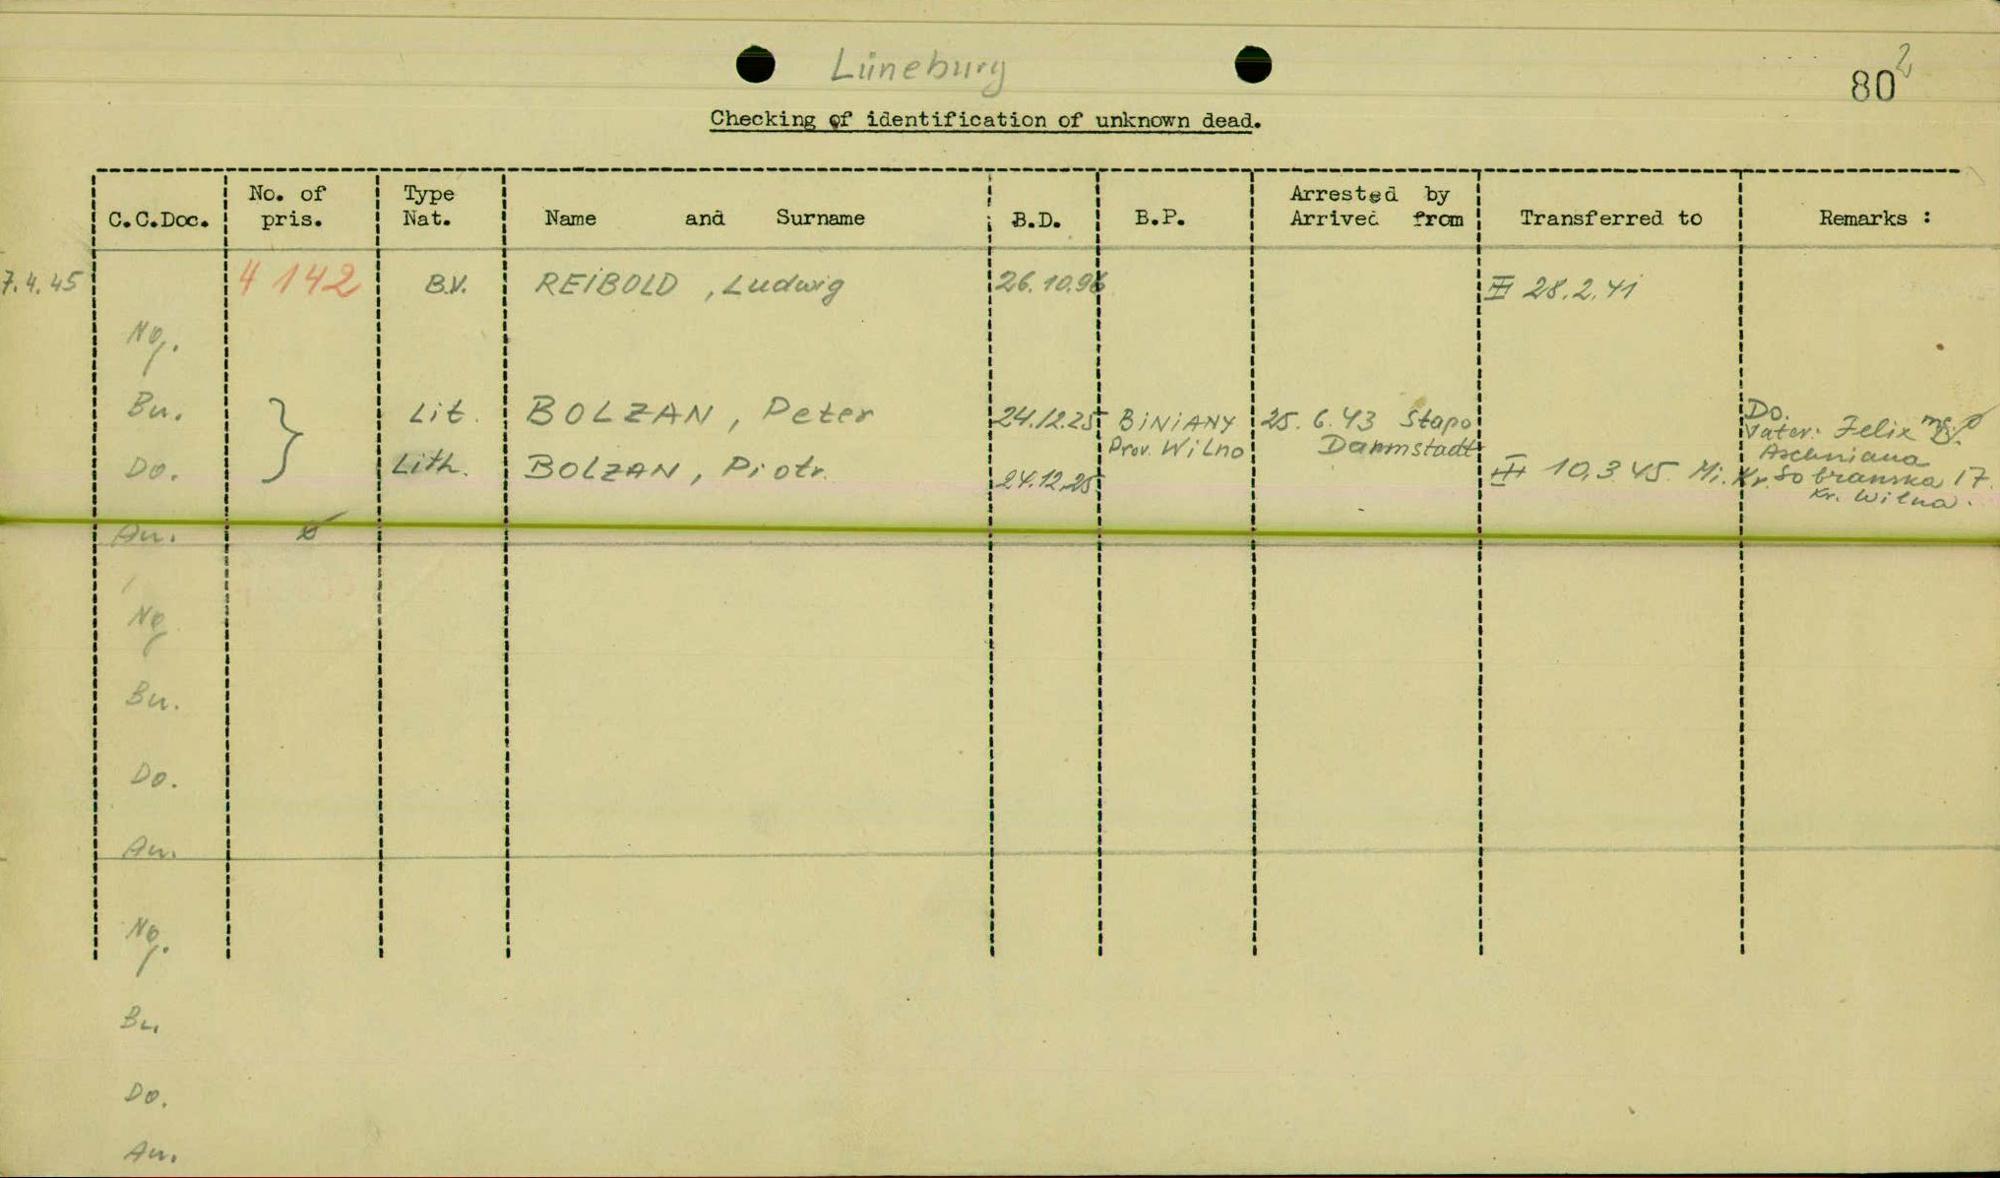 Lüneburg
80 2
Checking of identification of unknown dead.
C.C.Doc. No. of pris. Type Nat. Name and Surname B.D. B.P. Arrested by Arrived from Transferred to Remarks :
7.4.45 4 142 B.V. REIBOLD , Ludwig 26.10.96 III 28.2.41
Ng.
Bu. Lit. BOLZAN , Peter 24.12.25 BINIANY 25. 6. 43 Stapo Do.
Prov. Wilno Darmstadt Vater: Felix
Do. Lith. BOLZAN , Piotr. 24.12.25 III 10.3.45. Mi. Kr. Sobranska 17.
Kr. Wilna.
Au.
Ng
Bu.
Do.
Au.
Ng.
Bu.
Do.
Au.